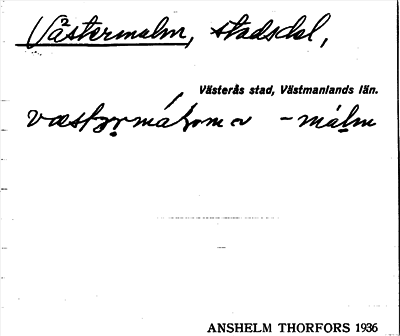 Västermalm, stadsdel,
Västerås stad, Västmanlands län.
-målm
ANSHELM THORFORS 1936